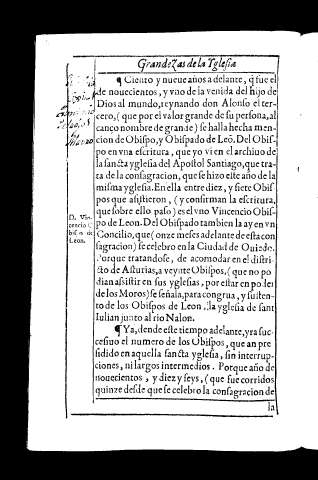 Grandezas de la Yglesia
¶ Ciento y nueue años adelante, q̃ fue el
de nouecientos, y vno de la venida del hijo de
Dios al mundo, reynando don Alonso el ter-
cero, (que por el valor grande de su persona, al
canço nombre de grande) se halla hecha men-
cion de Obispo, y Obispado de Leõ. Del Obis-
po en vna escritura, que yo vi en el archiuo de
la sancta yglesia del Apostol Santiago, que tra-
ta de la consagracion, que se hizo este año de la
misma yglesia. En ella entre diez, y siete Obis-
pos que asistieron, (y confirman la escritura,
que sobre ello paso) es el vno Vincencio Obis-
po de Leon. Del Obispado tambien la ay en vn
Concilio, que (onze meses adelante de esta con
sagracion) se celebro en la Ciudad de Ouiedo.
Porque tratandose, de acomodar en el distri-
cto de Asturias, a veynte Obispos, (que no po
dian asistir en sus yglesias, por estar en poder
de los Moros) se señala, para congrua, y susten-
to de los Obispos de Leon, la yglesia de sant
Iulian junto al rio Nalon.
¶ Ya, dende este tiempo adelante, yra suc-
cesiuo el numero de los Obispos, que an pre
sidido en aquella sancta yglesia, sin interrup-
ciones, ni largos intermedios. Porque año de
nouecientos, y diez y seys, (que fue corridos
quinze desde que se celebro la consagracion de
la
D. Vin-
cencio O
bispo de
Leon.